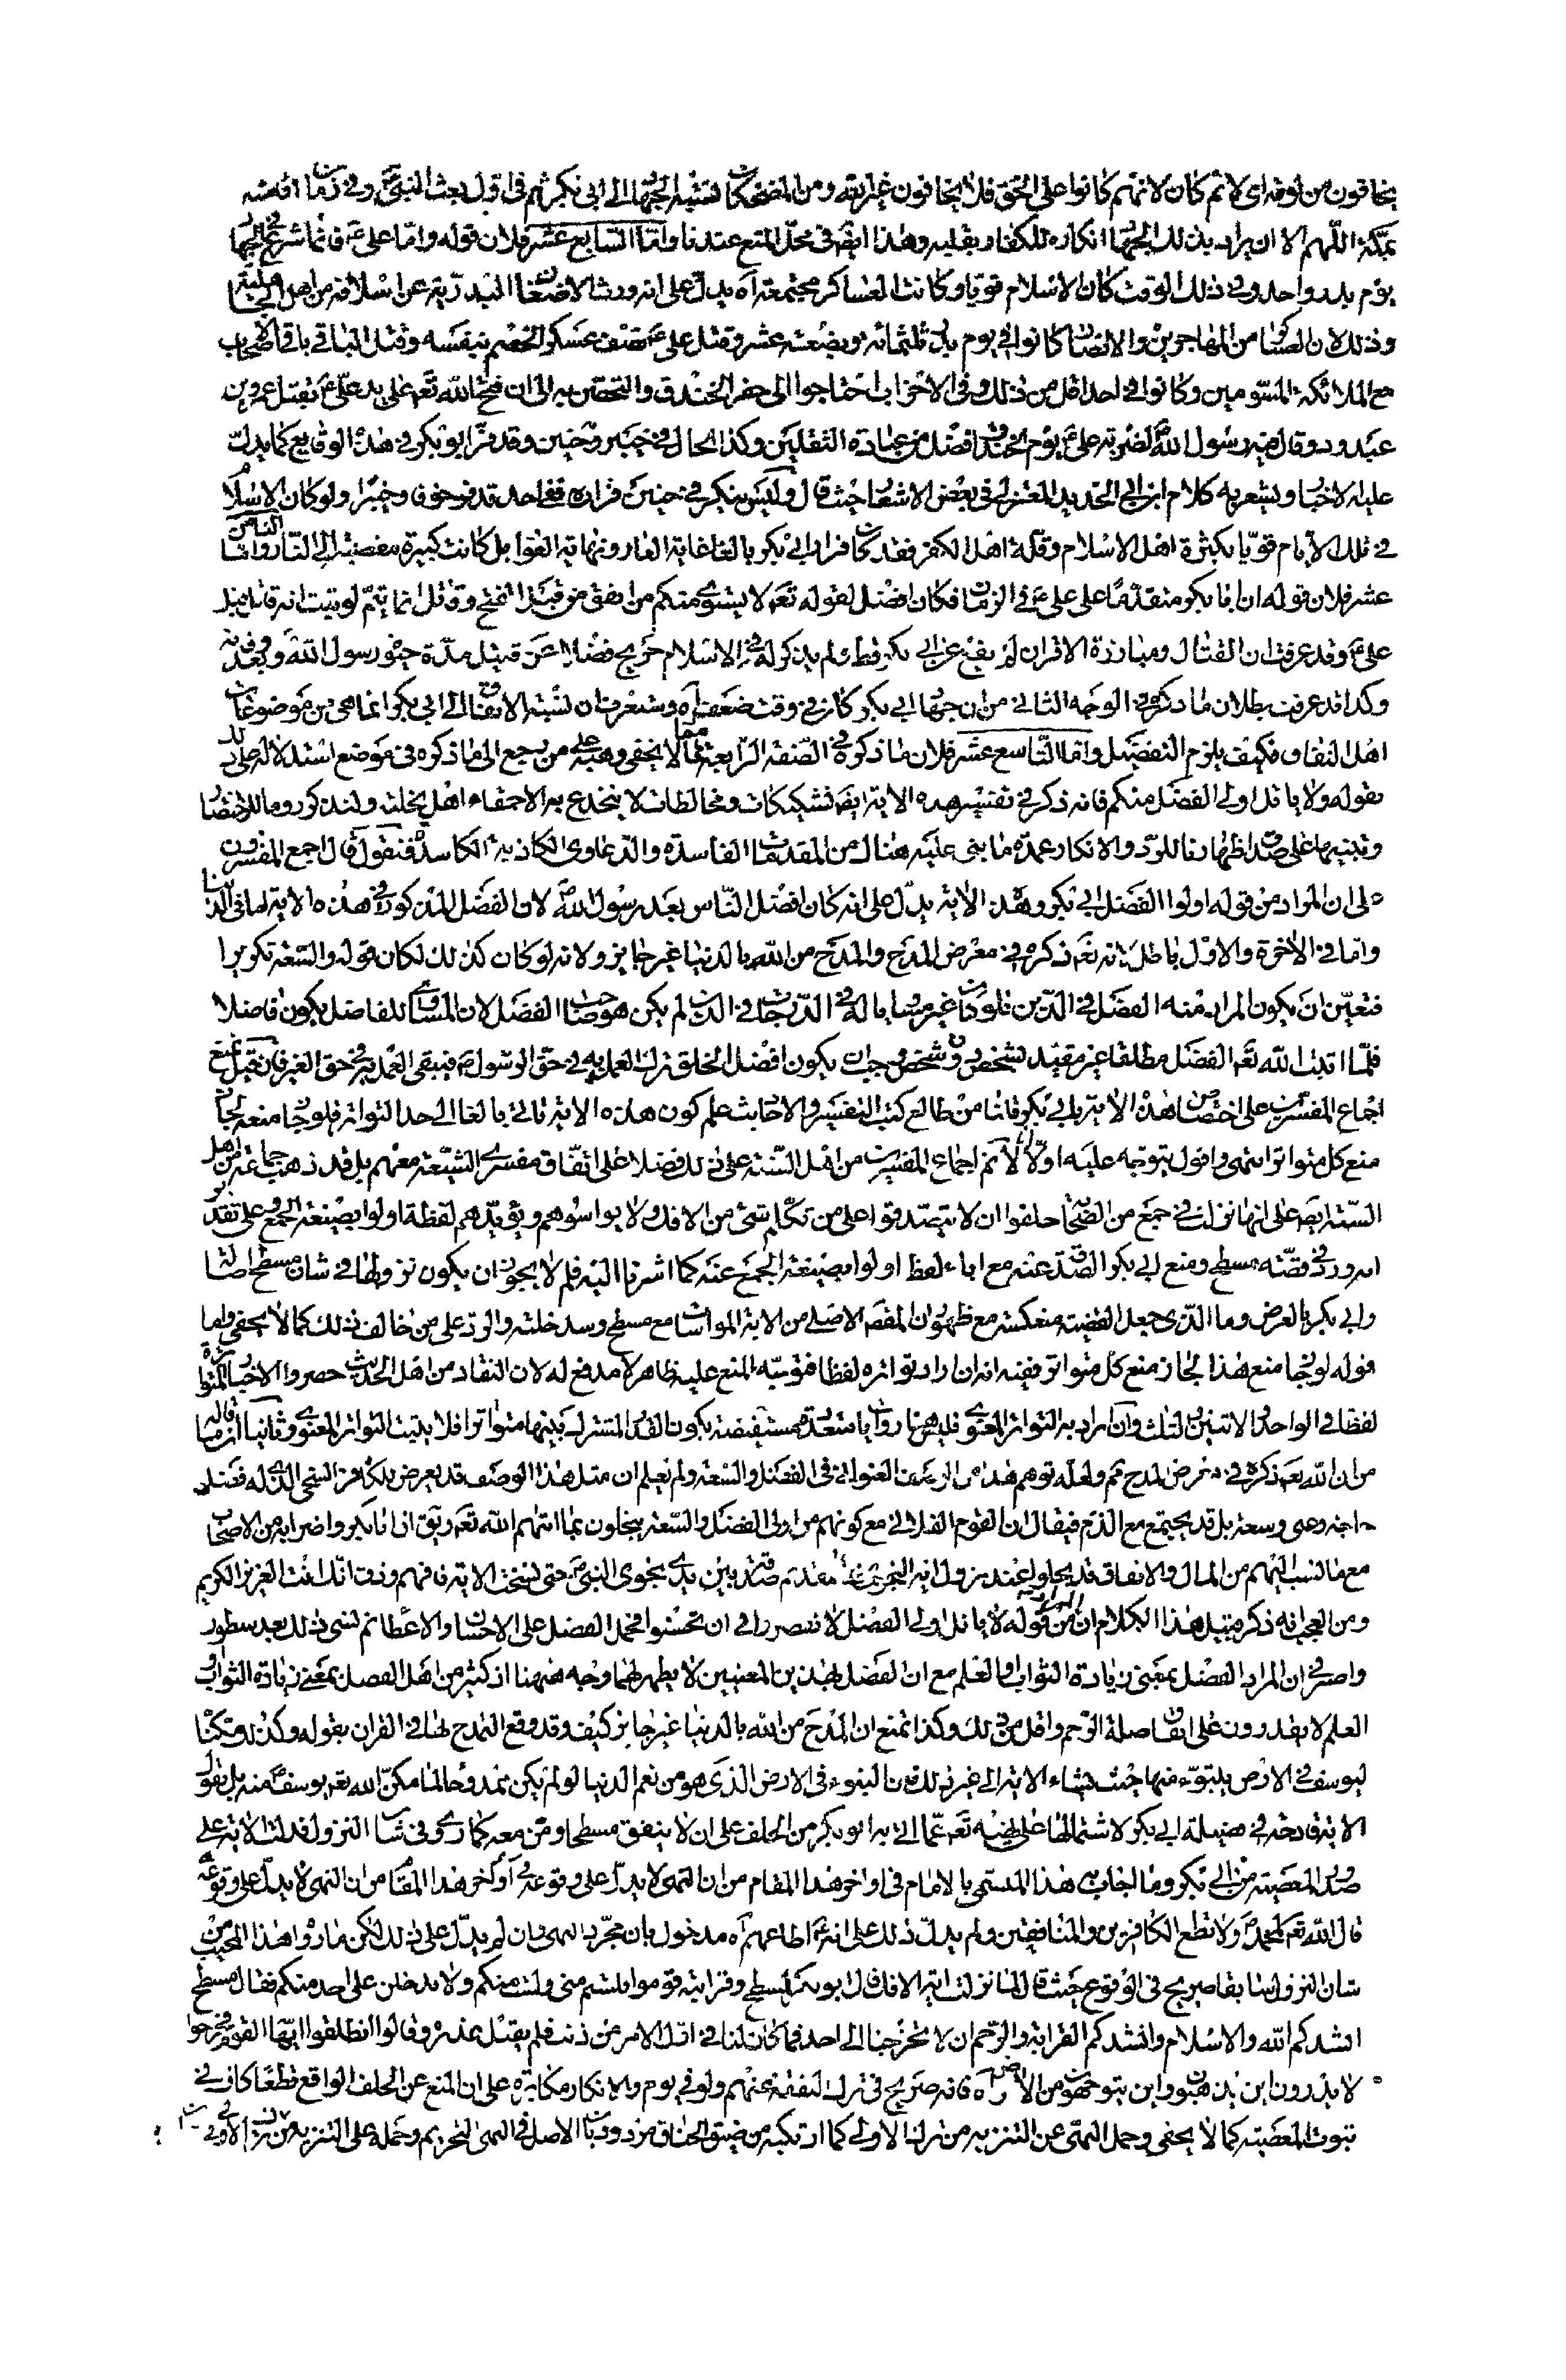 يخافون من لومة اى لائم كان لانهم كانوا على الحق فلا يخافون غير الله ومن المضحكات نسبة الجهاد الى ابى بكر ثم فى اول بعث النبى ص وفى زمان اقامته
بمكة اللهم الا ان يراد بذلك الجهاد انكاره للكفار بقلبه وهذا ايضا فى محل المنع عندنا واما السابع عشر فلان قوله واما على ع فانما شرع فى الجهاد
يوم بدر واحد وفى ذلك الوقت كان الاسلام قويا وكانت العساكر مجتمعة اه يدل على انه ورث الاضغان البدرية عن اسلافه من اهل الجاهلية
وذلك لان العساكر من المهاجرين والانصار كانوا فى يوم بدر ثلثمائة وبضعة عشر وقتل على ع نصف عسكر الخصم بنفسه وقتل الباقى باقى الاصحاب
مع الملائكة المسومين وكانوا فى احد اقل من ذلك وفى الاحزاب احتاجوا الى حفر الخندق والتحصن به الى ان فتح الله تعه على يد على ع بقتل عمرو بن
عبد ود وقال فيه رسول الله ص لضربة على ع يوم الخندق افضل من عبادة الثقلين وكذا الحال فى خيبر وحنين وقد فر ابو بكر فى هذه الوقايع كما يدل
عليه الاخبار ويشعر به كلام ابن ابى الحديد المعتزلى فى بعض الاشعار حيث قال وليس بنكر فى حنين فراره ففى احد قد فر خوفا وخيبرا ولو كان الاسلام
فى تلك الايام قويا بكثرة اهل الاسلام وقلة اهل الكفر فقد كان فرار ابى بكر بالغا غاية العار ونهاية العوار بل كانت كبيرة مفضية الى النار واما الثامن
عشر فلان قوله ان ابا بكر متقدما على على ع فى الزمان فكان افضل لقوله تعه لا يستوى منكم من انفق من قبل الفتح وقاتل انما يتم لو يثبت انه قاتل قبل
على ع وقد عرفت ان القتال ومبارزة الاقران لم يقع عن ابى بكر قط ولم يذكر له فى الاسلام جريح فضلا عن قتيل مدة حيوة رسول الله ص وبعد وفاته
وكذا قد عرفت بطلان ما ذكره فى الوجه الثانى من ان جهاد ابى بكر كان فى وقت ضعف اه وستعرف ان نسبة الانفاق الى ابى بكر انما هى من موضوعات
اهل النفاق فكيف يلزم التفضيل واما التاسع عشر فلان ما ذكره فى الصفة الرابعة مما لا يخفى وهنه على من رجع الى ما ذكره فى موضع استدلاله على ذلك
بقوله ولا ياتل اولى الفضل منكم فانه ذكر فى تفسير هذه الاية ايضا تشكيكات ومغالطات لا ينخدع به الا حمقاء اهل نحلته ولنذكر روما للاختصار
وتنبيها على صدق اظهارنا للرد والانكار عمدة ما بنى عليه هنالك من المقدمات الفاسدة والدعاوى الكاذبة الكاسدة فنقول قال اجمع المفسرون
على ان المراد من قوله اولوا الفضل ابى بكر وهذه الاية يدل على انه كان افضل الناس بعد رسول الله ص لان الفضل المذكور فى هذه الاية اما فى الدنيا
واما فى الاخرة والاول باطل لانه تعه ذكره فى معرض المدح والمدح من الله بالدنيا غير جايز ولانه لو كان كذلك لكان قوله والسعة تكريرا
فتعين ان يكون المراد منه الفضل فى الدين فلو كان غيره مساويا له فى الدرجات فى الدين لم يكن هو صاحب الفضل لان المساوى للفاضل يكون فاضلا
فلما اثبت الله تعه الفضل مطلقا غير مقيد بشخص دون شخص وجب ان يكون افضل الخلق ترك العمل به فى حق الرسول ص فيبقى العمل به فى حق الغير فان قيل نمنع
اجماع المفسرين على اختصاص هذه الاية بابى بكر قلنا من طالع كتب التفسير والاحاديث علم كون هذه الاية بالغا الى حد التواتر فلو جاز منعه لجاز
منع كل متواتر انتهى واقول يتوجه عليه اولا انا لا نم اجماع المفسرين من اهل السنة على ذلك فضلا على اتفاق مفسرى الشيعة معهم بل قد ذهب جماعة من اهل
السنة ايضا على انها نزلت فى جمع من الصحابة حلفوا ان لا يتصدقوا على من تكلم بشىء من الافك ولا يواسوهم ويؤيدهم لفظة اولوا بصيغة الجمع وعلى تقدير
انه ورد فى قصة مسطح ومنع ابى بكر الصدقة عنه مع اباء لفظ اولوا بصيغة الجمع عنه كما اشرنا اليه فلم لا يجوز ان يكون نزولها فى شان مسطح اصالة
وابى بكر بالعرض وما الذى جعل القضية منعكسة مع ظهور ان المقصد الاصلى من الاية المواسات مع مسطح وسد خلته والرد على من خالف ذلك كما لا يخفى واما
قوله لو جاز منع هذا لجاز منع كل متواتر ففيه انه ان اراد تواتره لفظا فتوجه المنع عليه ظاهر لا مدفع له لان النقاد من اهل الحديث حصروا الاخبار المتواترة
لفظا فى الواحد او الاثنين او الثلث وان اراد به التواتر المعنوى فليس هنا روايات متعددة مستفيضة يكون القدر المشترك بينها متواترا فلا يثبت التواتر المعنوى وثانيا ان ما قاله
من ان الله تعه ذكره فى معرض المدح مم ولعله توهم هذا من الوصف العنوانى فى الفضل والسعة ولم يعلم ان مثل هذا الوصف قد يعرض بلكافر الشحيح الذى له فضل
حاجة وغنى وسعة بل قد يجتمع مع الذم فيقال ان القوم الفلانى مع كونهم من اولى الفضل والسعة يبخلون بما اتيهم الله تعه ويؤيد ان ابا بكر واضرابه من الاصحاب
مع ما نسب اليهم من المال والانفاق قد بخلوا عند نزول اية النجوى عن تقديم صدقة بين يدى نجوى النبى ص حتى نسخت الاية فافهم وذق انك انت العزيز الكريم
ومن العجب انه ذكر قبيل هذا الكلام ان المراد من قوله لا ياتل اولى الفضل لا تقصروا فى ان تحسنوا فحمل الفضل على الاحسان والاعطاء ثم نسى ذلك بعد سطور
واصر فى ان المراد الفضل بمعنى زيادة الثواب او العلم مع ان الفضل بهذين المعنيين لا يظهر لهما وجه هيهنا اذ كثير من اهل الفضل بمعنى زيادة الثواب او
العلم لا يقدرون على انفاق صلة الرحم واقل من ذلك وكذا نمنع ان المدح من الله بالدنيا غير جايز كيف وقد وقع المدح لها فى القران بقوله وكذلك مكنا
ليوسف فى الارض يتبوء منها حيث يشاء الاية الى غير ذلك فان التبوء فى الارض الذى هو من نعم الدنيا لو لم يكن ممدوحا لما مكن الله تعه يوسف ع منه بل نقول
الاية قادحة فى فضيلة ابى بكر لاشتمالها على نهيه تعه عما اتى به ابو بكر من الحلف على ان لا ينفق مسطحا ومن معه كما روى فى شان النزول فدلت الاية على
صدور المعصية من ابى بكر وما اجاب به هذا المسمى بالامام فى اواخر هذا المقام من ان النهى لا يدل على وقوعه فى اواخر هذا المقام من ان النهى لا يدل على وقوعه
قال الله تعه لمحمد ص ولا تطع الكافرين والمنافقين ولم يدل ذلك على انه ع اطاعهم اه مدخول بان مجرد النهى وان لم يدل على ذلك لكن ما رواه هذا المجيب من
شان النزول سابقا صريح فى الوقوع حيث قال لما نزلت اية الافك قال ابو بكر لمسطح وقرابته قوموا فلستم منى ولست منكم ولا يدخلن على احد منكم فقال مسطح
انشدكم الله والاسلام وانشدكم القرابة والرحم ان لا تحوجنا الى احد فما كان لنا فى اول الامر من ذنب فلم يقبل عذره وقالوا انطلقوا ايها القوم فخرجوا
لا يدرون اين يذهبون واين يتوجهون من الارض اه فانه صريح فى ترك النفقة عنهم ولو فى يوم والانكار مكابرة على ان المنع عن الحلف الواقع قطعا كاف فى
ثبوت المعصية كما لا يخفى وحمل النهى عن التنزيه من ترك الاولى كما ارتكبه من ضيق الخناق مردود بان الاصل فى النهى التحريم وحمله على التنزيه من ترك الاولى